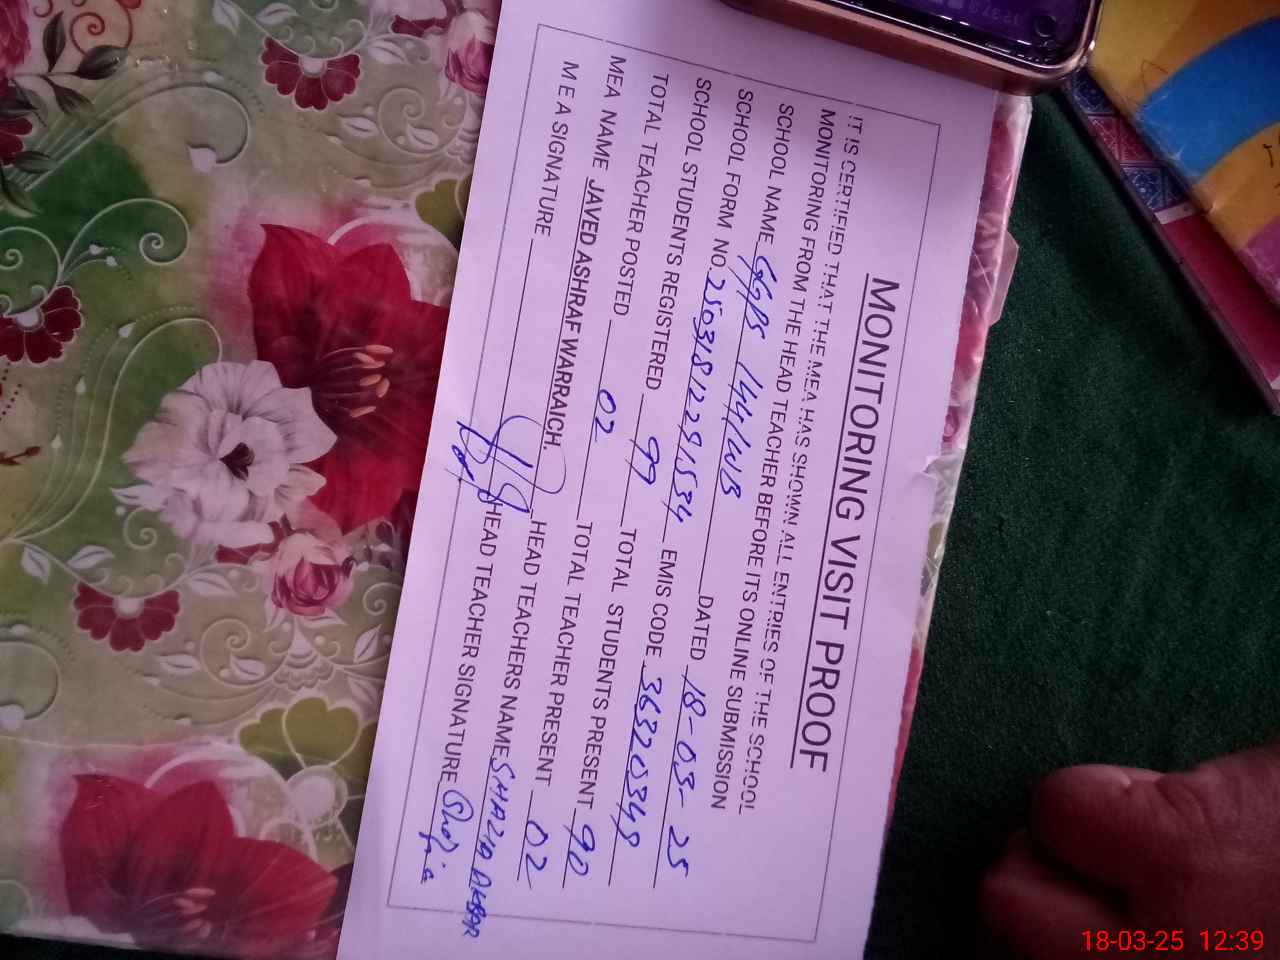 MONITORING VISIT PROOF
IT IS CERTIFIED THAT THE MEA HAS SHOWN ALL ENTRIES OF THE SCHOOL
MONITORING FROM THE HEAD TEACHER BEFORE ITS ONLINE SUBMISSION
SCHOOL NAME GGPS 144/WB DATED 18-03-25
SCHOOL FORM NO. EMIS CODE 36320348
SCHOOL STUDENTS REGISTERED 99 TOTAL STUDENTS PRESENT 90
TOTAL TEACHER POSTED 02 TOTAL TEACHER PRESENT 02
MEA NAME JAVED ASHRAF WARRAICH. HEAD TEACHERS NAME SHAZIA AKBAR
M E A SIGNATURE HEAD TEACHER SIGNATURE Shazia
18-03-25 12:39